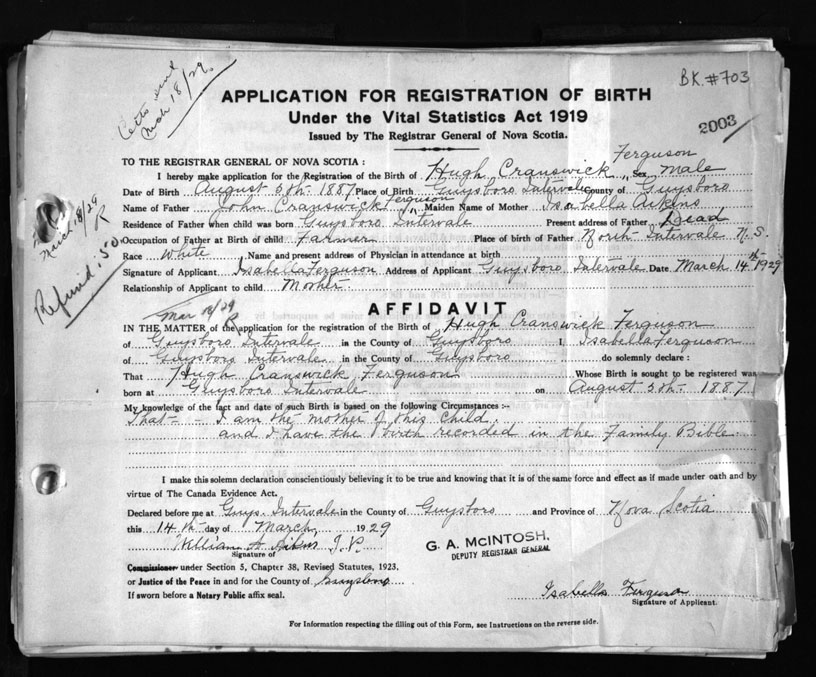 BK.#703
Mch 18/29
APPLICATION FOR REGISTRATION OF BIRTH
Under the Vital Statistics Act 1919
2003
Issued by The Registrar General of Nova Scotia.
TO THE REGISTRAR GENERAL OF NOVA SCOTIA :
Ferguson
I hereby make application for the Registration of the Birth of Hugh Cranswick " Sex Male
Date of Birth August 5th 1887 Place of Birth Guysboro Intervale County of Guysboro
Ferguson
Name of Father John Cranswick " Maiden Name of Mother Isabella Aikins
Residence of Father when child was born Guysboro Intervale Present address of Father Dead
Occupation of Father at Birth of child Farmer Place of birth of Father North Intervale N.S.
Race White Name and present address of Physician in attendance at birth
Signature of Applicant Isabella Ferguson Address of Applicant Guysboro Intervale Date March 14th 1929
Relationship of Applicant to child Mother
March 18/29
R
Refund .50
AFFIDAVIT
Mar 18/29
R
IN THE MATTER of the application for the registration of the Birth of Hugh Cranswick Ferguson
of Guysboro Intervale in the County of Guysboro I, Isabella Ferguson
of Guysboro Intervale in the County of Guysboro do solemnly declare :
That Hugh Cranswick Ferguson Whose Birth is sought to be registered was
born at Guysboro Intervale on August 5th 1887
My knowledge of the fact and date of such Birth is based on the following Circumstances :-
That - I am the mother of this Child.
and I have the birth recorded in the Family Bible.
I make this solemn declaration conscientiously believing it to be true and knowing that it is of the same force and effect as if made under oath and by
virtue of The Canada Evidence Act.
Declared before me at Guys. Intervale in the County of Guysboro and Province of Nova Scotia
this 14th day of March 1929
William A. Aikins J.P.
Signature of
G. A. McINTOSH,
DEPUTY REGISTRAR GENERAL
Commissioner under Section 5, Chapter 38, Revised Statutes, 1923.
or Justice of the Peace in and for the County of Guysboro
If sworn before a Notary Public affix seal.
Isabella Ferguson
Signature of Applicant.
For Information respecting the filling out of this Form, see Instructions on the reverse side.